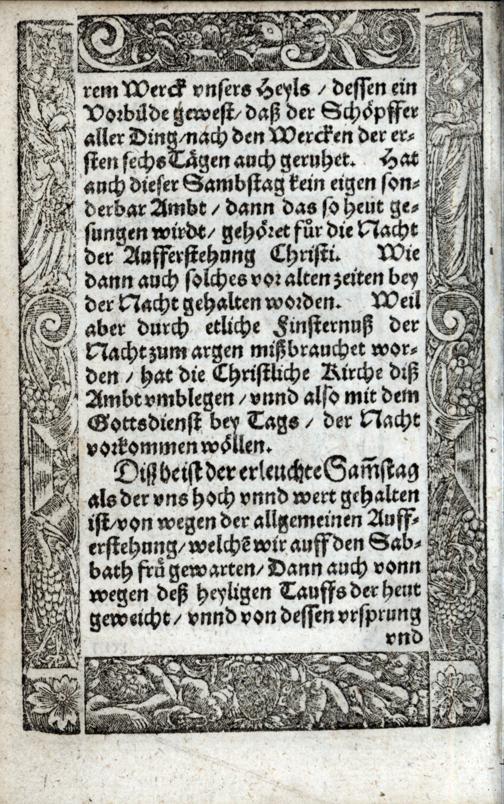 rem Werck vnsers Heyls / dessen ein
Vorbilde gewest / daß der Schöpffer
aller Ding / nach den Wercken der er-
sten sechs Tägen auch geruhet. Hat
auch dieser Sambstag kein eigen son-
derbar Ambt / dann das so heut ge-
sungen wirdt / gehöret für die Nacht
der Aufferstehung Christi. Wie
dann auch solches vor alten zeiten bey
der Nacht gehalten worden. Weil
aber durch etliche Finsternuß der
Nacht zum argen mißbrauchet wor-
den / hat die Christliche Kirche diß
Ambt vmblegen / vnnd also mit dem
Gottsdienst bey Tags / der Nacht
vorkommen wöllen.
Diß heist der erleuchte Sam̃stag
als der vns hoch vnnd wert gehalten
ist / von wegen der allgemeinen Auff-
erstehung / welchẽ wir auff den Sab-
bath frü gewarten / Dann auch vonn
wegen deß heyligen Tauffs der heut
geweicht / vnnd von dessen vrsprung
vnd